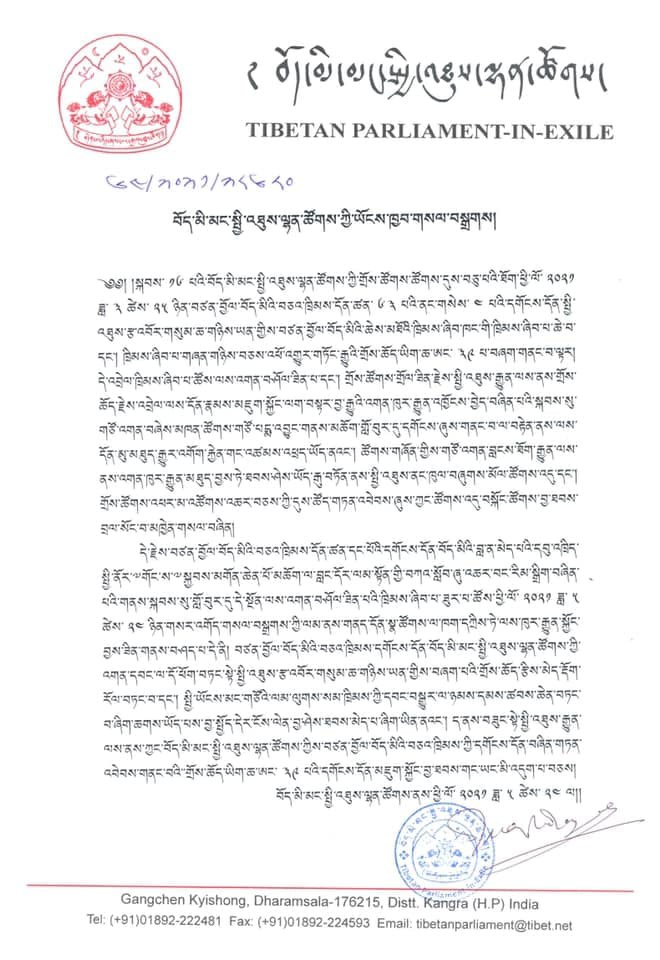 ༄ བོད་མི་མང་སྤྱི་འཐུས་ལྷན་ཚོགས།
TIBETAN PARLIAMENT-IN-EXILE
བོད་མི་མང་སྤྱི་འཐུས་ལྷན་ཚོགས་ཀྱི་ཡོངས་ཁྱབ་གསལ་བསྒྲགས།
༄༅། །སྐབས་ ༡༦ པའི་བོད་མི་མང་སྤྱི་འཐུས་ལྷན་ཚོགས་ཀྱི་གྲོས་ཚོགས་ཚོགས་དུས་བཅུ་པའི་ཐོག་ཕྱི་ལོ་ ༢༠༢༡
ཟླ་ ༣ ཚེས་ ༢༥ ཉིན་བཙན་བྱོལ་བོད་མིའི་བཅའ་ཁྲིམས་དོན་ཚན་ ༦༣ པའི་ནང་གསེས་ ༤ པའི་དགོངས་དོན་སྤྱི་
འཐུས་རྩ་འཛོར་གསུམ་ཆ་གཉིས་ཡན་གྱིས་བཙན་བྱོལ་བོད་མིའི་ཆེས་མཐོའི་ཁྲིམས་ཞིབ་ཁང་གི་ཁྲིམས་ཞིབ་པ་ཆེ་བ་
དང་། ཁྲིམས་ཞིབ་པ་གཞན་གཉིས་བཅས་འཕོ་འགྱུར་གཏོང་རྒྱུའི་གྲོས་ཆོད་ཡིག་ཆ་ཨང་ ༣༩ པ་བཞག་གནང་བ་ལྟར།
དེ་འབྲེལ་ཁྲིམས་ཞིབ་པ་ཚོས་ལས་འགན་བཤོལ་ཟིན་པ་དང་། གྲོས་ཚོགས་གྲོལ་ཟིན་རྗེས་སྤྱི་འཐུས་རྒྱུན་ལས་ནས་གྲོས་
ཆོད་རྗེས་འབྲེལ་ལས་དོན་རྣམས་མཇུག་སྐྱོང་ལག་བསྟར་བྱ་རྒྱུའི་འགན་ཁུར་རྒྱུན་འཁྱོངས་བྱེད་བཞིན་པའི་སྐབས་སུ་
གཙོ་འགན་བཞེས་མཁན་ཚོགས་གཙོ་པདྨ་འབྱུང་གནས་མཆོག་གློ་བུར་དུ་དགོངས་ཞུས་གནང་བ་ལ་བརྟེན་ནས་ལས་
དོན་མུ་མཐུད་རྒྱུར་འགོག་རྐྱེན་གང་འཚམས་འཕྲད་ཡོད་ནའང་། ཚོགས་གཞོན་གྱིས་གཙོ་འགན་བླངས་ཐོག་རྒྱུན་ལས་
ནས་འགན་ཁུར་རྒྱུན་མཐུད་བྱས་ཏེ་ཐབས་ཤེས་ཡོད་རྒུ་བཏོན་ནས་སྤྱི་འཐུས་ནང་ཁུལ་བཞུགས་མོལ་ཚོགས་འདུ་དང་།
གྲོས་ཚོགས་འཕར་མ་འཚོགས་འཆར་བཅས་ཀྱི་དུས་ཚོད་གཏན་འབེབས་ཞུས་ཀྱང་ཚོགས་འདུ་བསྐོང་ཚོགས་བྱ་ཐབས་
བྲལ་སོང་བ་མཁྱེན་གསལ་བཞིན།
དེ་རྗེས་བཙན་བྱོལ་བོད་མིའི་བཅའ་ཁྲིམས་དོན་ཚན་དང་པོའི་དགོངས་དོན་བོད་མིའི་བླ་ན་མེད་པའི་དབུ་འཁྲིད་
སྤྱི་ནོར་༸གོང་ས་༸སྐྱབས་མགོན་ཆེན་པོ་མཆོག་ལ་བླང་དོར་ལམ་སྟོན་གྱི་བཀའ་སློབ་ཞུ་འཆར་བང་རིམ་སྒྲིག་བཞིན་
པའི་གནས་སྐབས་སུ་གློ་བུར་དུ་དེ་སྔོན་ལས་འགན་བཤོལ་ཟིན་པའི་ཁྲིམས་ཞིབ་པ་ཟུར་པ་ཚོས་ཕྱི་ལོ་ ༢༠༢༡ ཟླ་ ༥
ཚེས་ ༢༤ ཉིན་གསར་འགོད་གསལ་བསྒྲགས་ཀྱི་ལམ་ནས་གནད་དོན་སྣ་ཚོགས་ལ་ཁག་དཀྲིས་ཏེ་ལས་ཁུར་རྒྱུན་སྐྱོང་
བྱས་ཟིན་གནས་བཤད་པ་དེ་ནི། བཙན་བྱོལ་བོད་མིའི་བཅའ་ཁྲིམས་དགོངས་དོན་བོད་མི་མང་སྤྱི་འཐུས་ལྷན་ཚོགས་ཀྱི་
འགན་དབང་ལ་དོ་ཕོག་བཏང་སྟེ་སྤྱི་འཐུས་རྩ་འཛོར་གསུམ་ཆ་གཉིས་ཡན་གྱིས་བཞག་པའི་གྲོས་ཆོད་རྩིས་མེད་རྡོག་
རོལ་བཏང་བ་དང་། སྤྱི་ཡོངས་མང་གཙོའི་ལམ་ལུགས་སམ་ཁྲིམས་ཀྱི་དབང་བསྒྱུར་ལ་ཉམས་དམས་ཚབས་ཆེན་བཏང་
བ་ཞིག་ཆགས་ཡོད་པས་བྱ་སྤྱོད་དེར་ངོས་ལེན་བྱ་ཤེས་ཐབས་མེད་པ་ཞིག་ཡིན་ནའང་། ད་ནས་བཟུང་སྟེ་སྤྱི་འཐུས་རྒྱུན་
ལས་ནས་ཀྱང་བོད་མི་མང་སྤྱི་འཐུས་ལྷན་ཚོགས་ཀྱིས་བཙན་བྱོལ་བོད་མིའི་བཅའ་ཁྲིམས་ཀྱི་དགོངས་དོན་བཞིན་གཏན་
འབེབས་གནང་བའི་གྲོས་ཆོད་ཡིག་ཆ་ཨང་ ༣༩ པའི་དགོངས་དོན་མཇུག་སྐྱོང་བྱ་ཐབས་གང་ཡང་མི་འདུག་པ་བཅས།
བོད་མི་མང་སྤྱི་འཐུས་ལྷན་ཚོགས་ནས་ཕྱི་ལོ་ ༢༠༢༡ ཟླ་ ༥ ཚེས་ ༢༤ ལ།།
Tibetan Parliament-in-Exile
Gangchen Kyishong, Dharamsala-176215, Distt. Kangra (H.P) India
Tel: (+91)01892-222481 Fax: (+91)01892-224593 Email: tibetanparliament@tibet.net